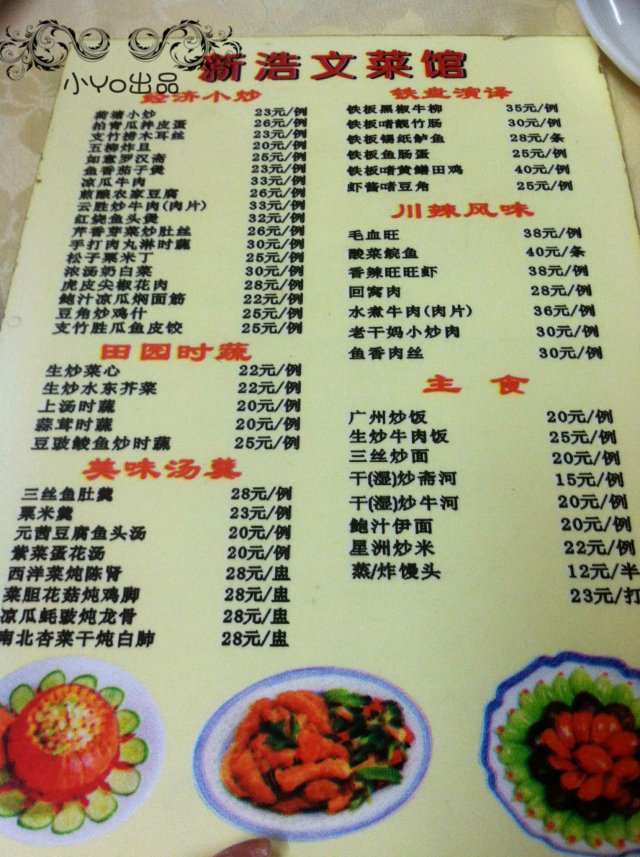 小Yo出品
新浩文菜馆
经济小炒
荷塘小炒 23元/例
拍青瓜拌皮蛋 26元/例
支竹捞木耳丝 23元/例
五柳炸旦 20元/例
如意罗汉斋 25元/例
鱼香茄子煲 23元/例
凉瓜牛肉 33元/例
煎酿农家豆腐 26元/例
云胜炒牛肉(肉片) 33元/例
红烧鱼头煲 32元/例
芹香芽菜炒肚丝 26元/例
手打肉丸淋时蔬 30元/例
松子粟米丁 25元/例
浓汤奶白菜 30元/例
虎皮尖椒花肉 28元/例
鲍汁凉瓜焖面筋 22元/例
豆角炒鸡什 25元/例
支竹胜瓜鱼皮饺 25元/例
田园时蔬
生炒菜心 22元/例
生炒水东芥菜 22元/例
上汤时蔬 20元/例
蒜茸时蔬 20元/例
豆豉鲮鱼炒时蔬 25元/例
美味汤羹
三丝鱼肚羹 28元/例
粟米羹 23元/例
元茜豆腐鱼头汤 20元/例
紫菜蛋花汤 20元/例
西洋菜炖陈肾 28元/盅
菜胆花菇炖鸡脚 28元/盅
凉瓜蚝豉炖龙骨 28元/盅
南北杏菜干炖白肺 28元/盅
铁盘演译
铁板黑椒牛柳 35元/例
铁板嗜靓竹肠 30元/例
铁板锡纸鲈鱼 28元/条
铁板鱼肠蛋 25元/例
铁板嗜黄鳝田鸡 40元/例
虾酱嗜豆角 25元/例
川辣风味
毛血旺 38元/例
酸菜鲩鱼 40元/条
香辣旺旺虾 38元/例
回窝肉 28元/例
水煮牛肉(肉片) 36元/例
老干妈小炒肉 30元/例
鱼香肉丝 30元/例
主食
广州炒饭 20元/例
生炒牛肉饭 25元/例
三丝炒面 20元/例
干(湿)炒斋河 15元/例
干(湿)炒牛河 20元/例
鲍汁伊面 20元/例
星洲炒米 22元/例
蒸/炸馒头 12元/半
23元/打